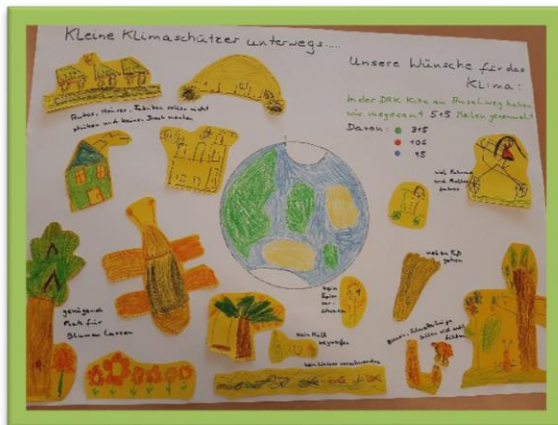 Kleine Klimaschützer unterwegs....
Unsere Wünsche für das
Klima:
In der DRK Kita am Amselweg haben
wir insgesamt 515 Meilen gesammelt
Davon:
315
105
95
Autos, Häuser, Fabriken sollen nicht
stinken und keinen Dreck machen
viel Fahrrad
und Roller
fahren
mehr zu Fuß
gehen
kein
Papier
ver-
schwenden
kein Müll
wegwerfen
kein Wasser verschwenden
genügend
Platz für
Blumen lassen